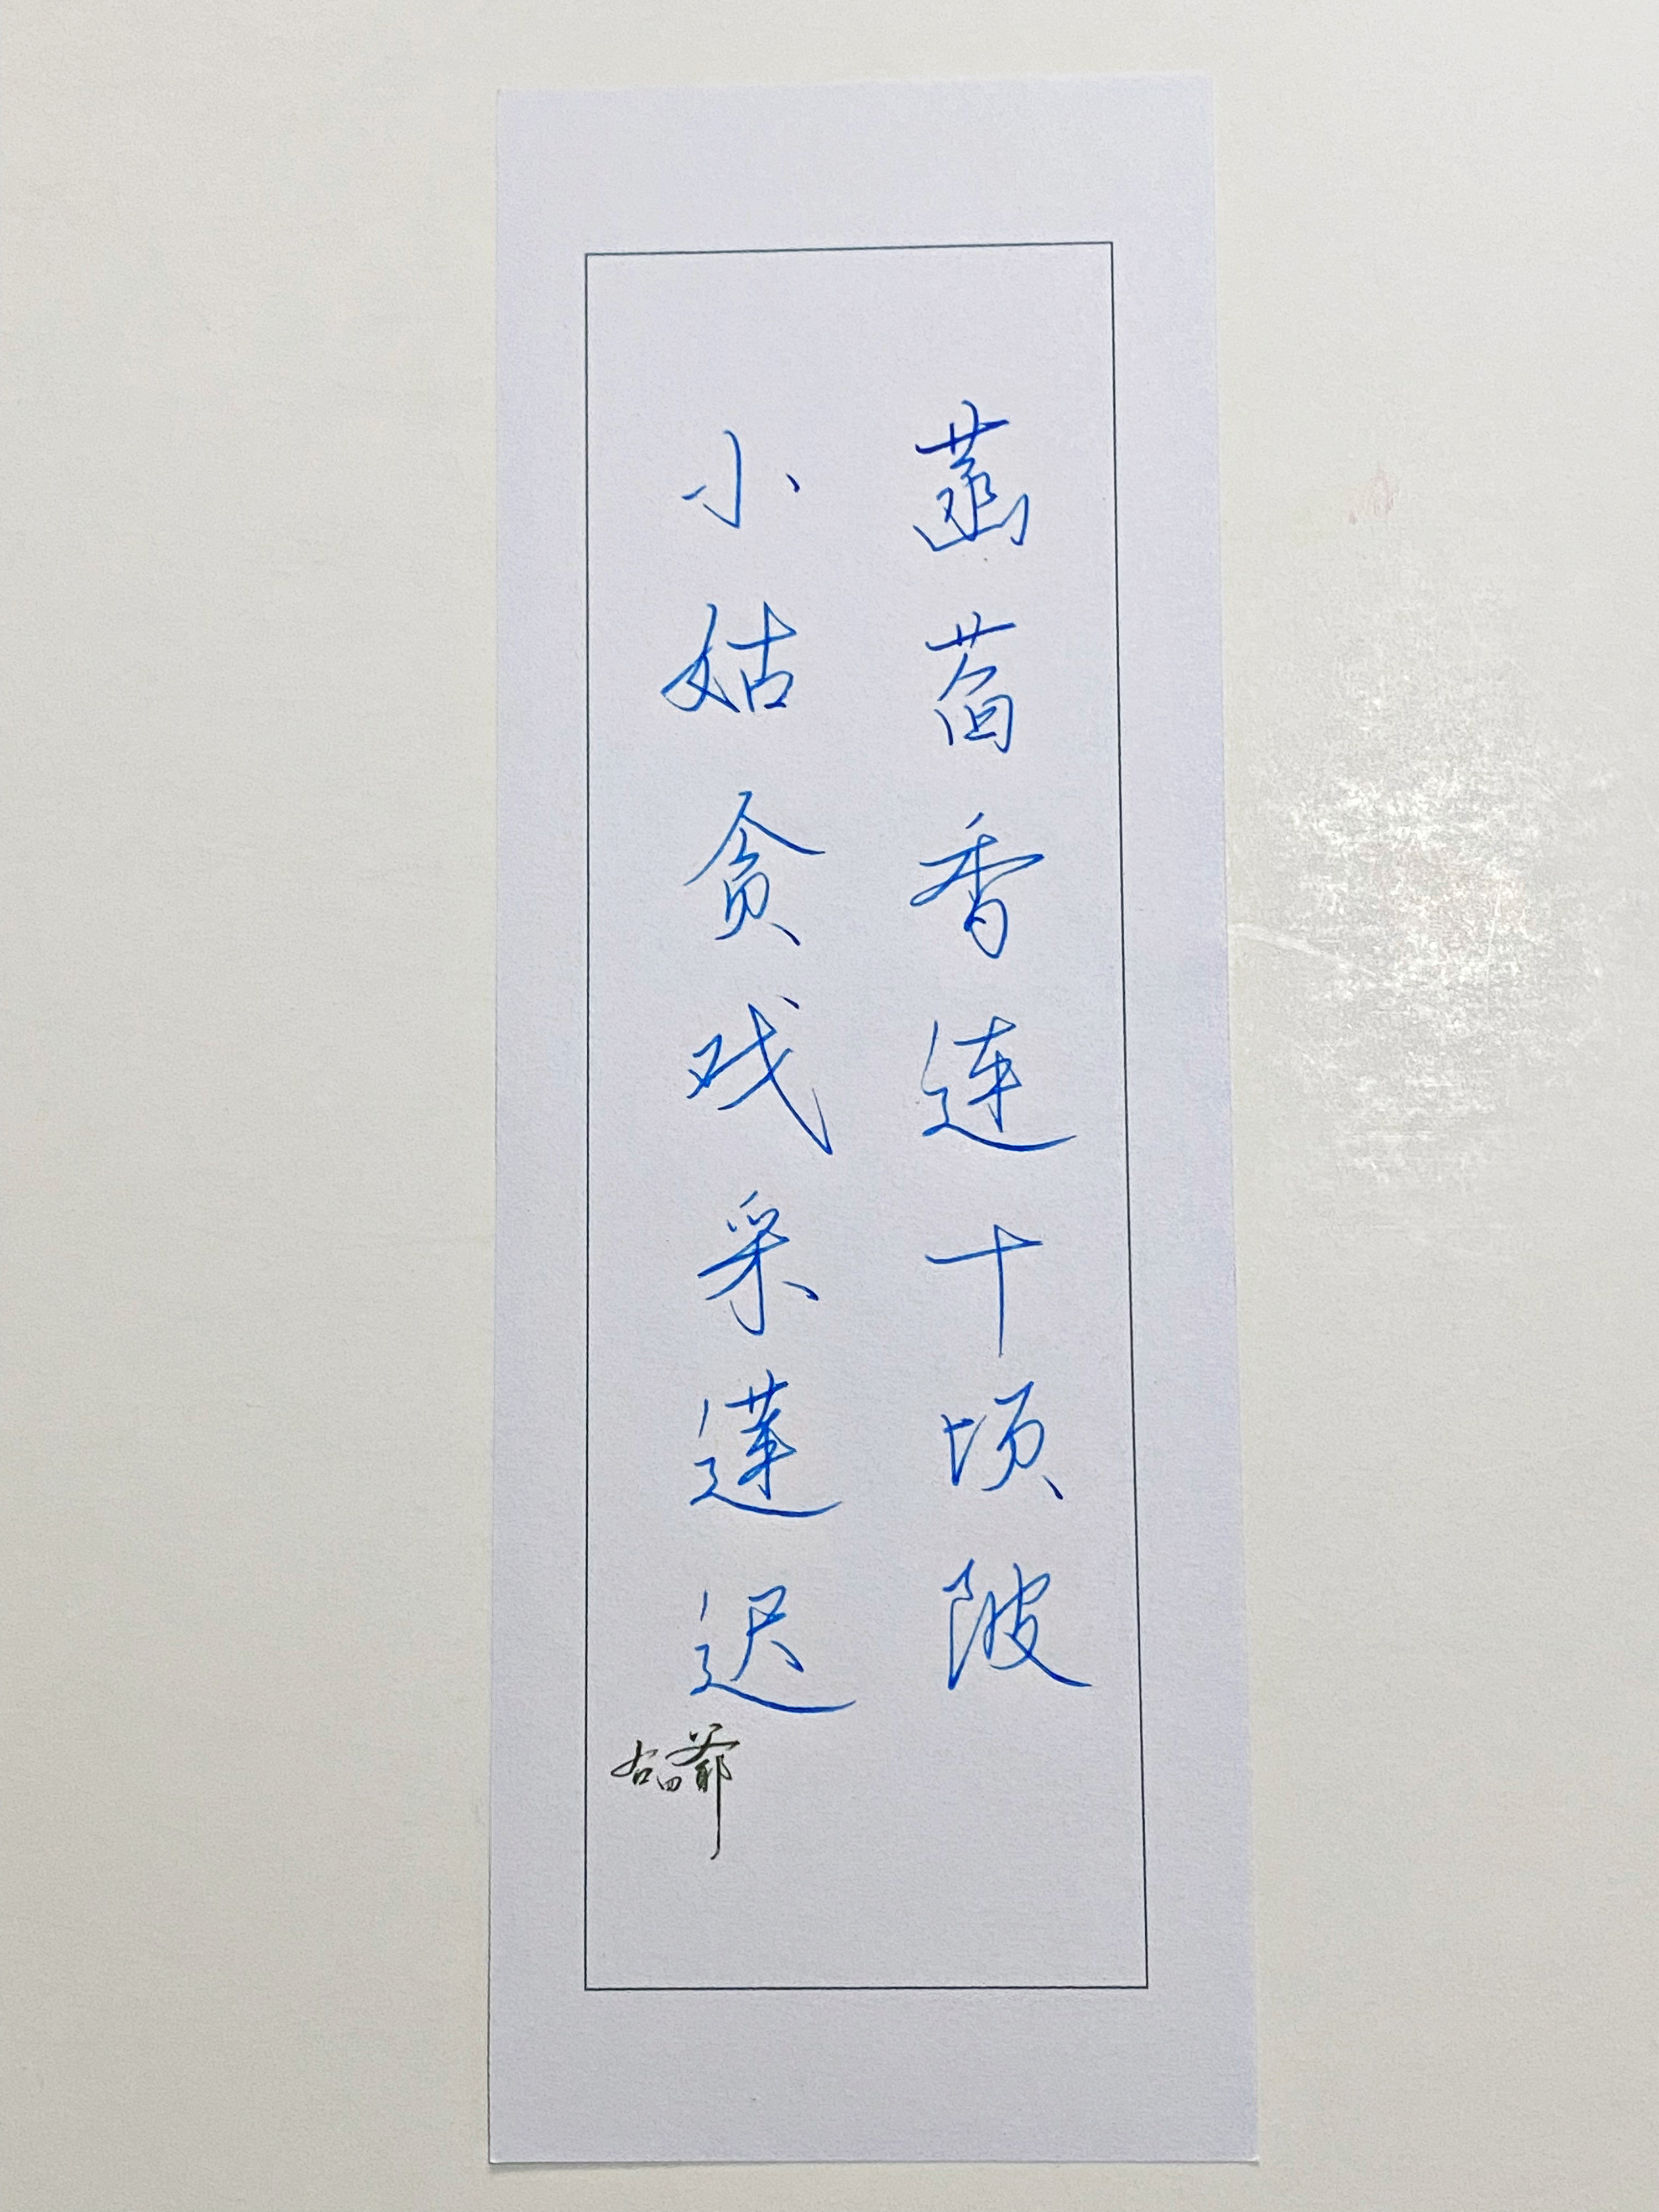 菡萏香连十顷陂
小姑贪戏采莲迟
右四爺